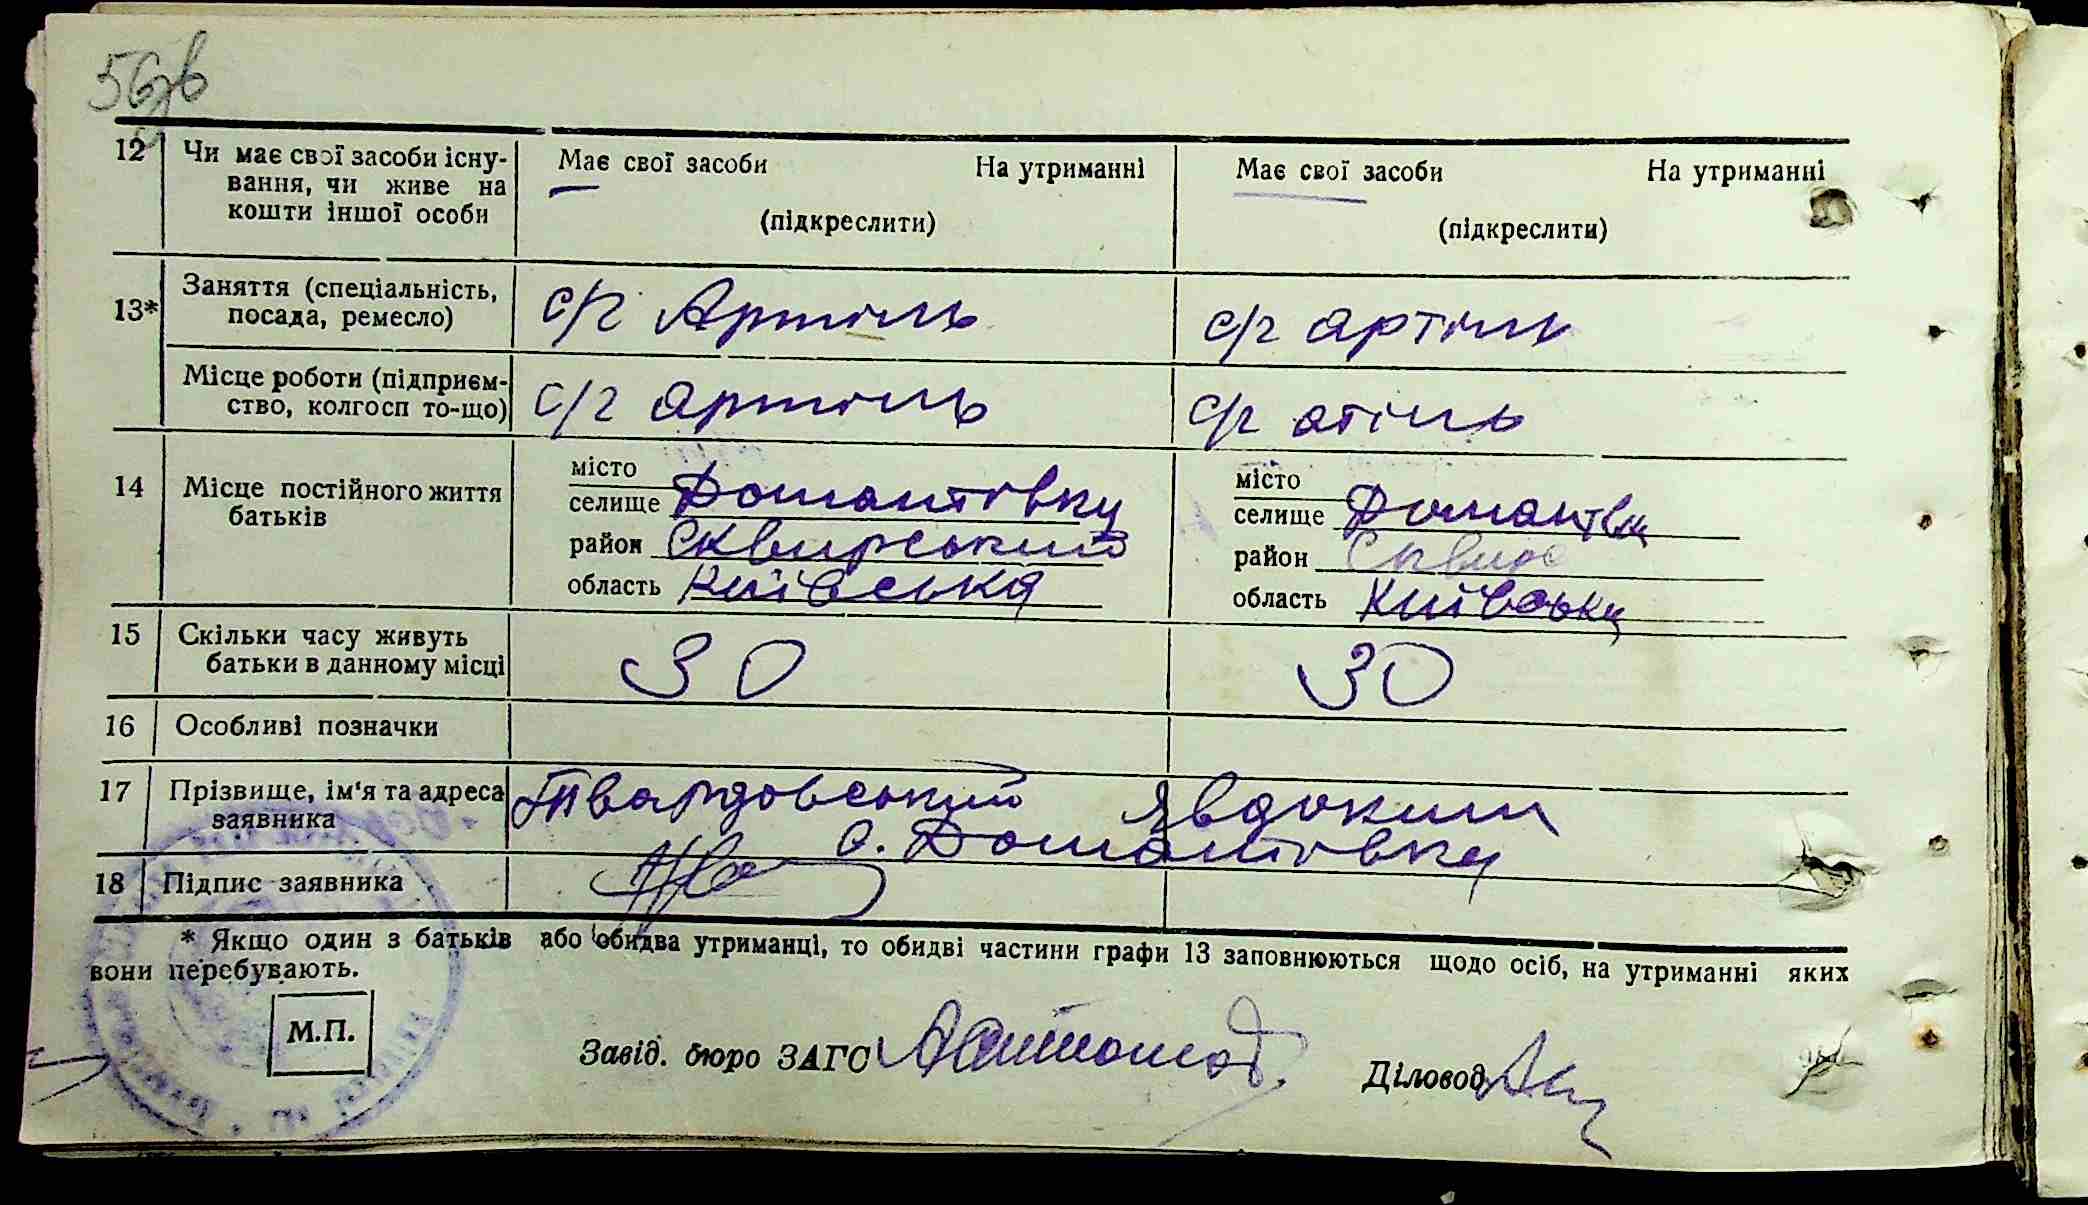 56зв
12 Чи має свої засоби існу- Має свої засоби На утриманні Має свої засоби На утриманні
вання, чи живе на
кошти іншої особи (підкреслити) (підкреслити)
13* Заняття (спеціальність, с/г Артіль с/г артіль
посада, ремесло)
Місце роботи (підприєм- с/г артіль с/г атіль
ство, колгосп то-що)
14 Місце постійного життя місто місто
батьків селище Домантовку селище Домантвку
район Сквирський район Сквирс
область Київська область Київську
15 Скільки часу живуть 30 30
батьки в данному місці
16 Особливі позначки
17 Прізвище, ім'я та адреса Твардовський Явдоким
заявника с. Домантовку
18 Підпис заявника
* Якщо один з батьків або обидва утриманці, то обидві частини графи 13 заповнюються щодо осіб, на утриманні яких
вони перебувають.
М.П.
Завід. бюро ЗАГС Діловод